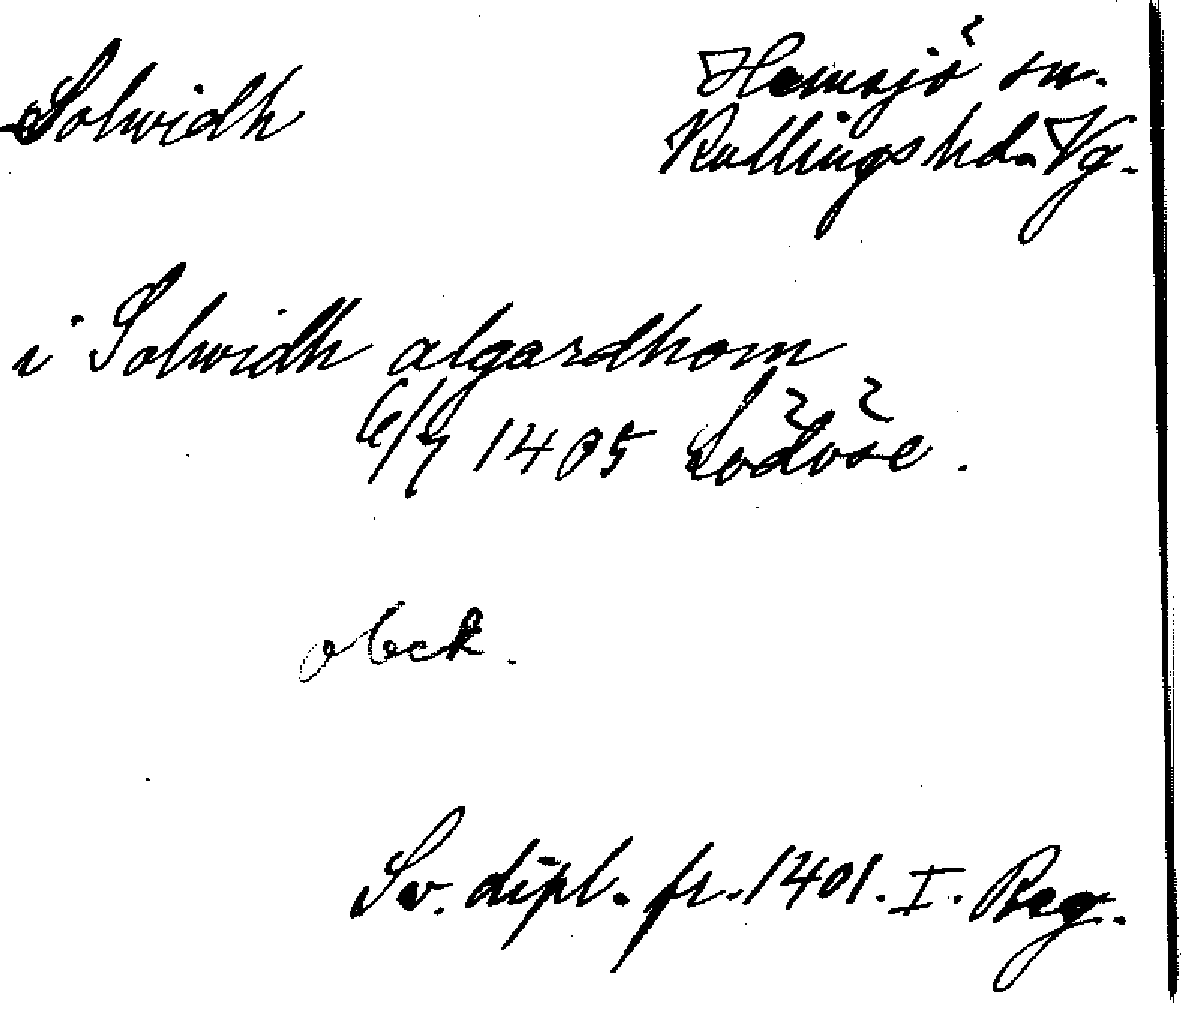 Solwidh
Hemsjö sn.
Kullings hd. Vg.
i Solwidh algardhom
6/9 1405 Lödöse.
obek.
Sv. dipl. fr. 1401. I. Reg.